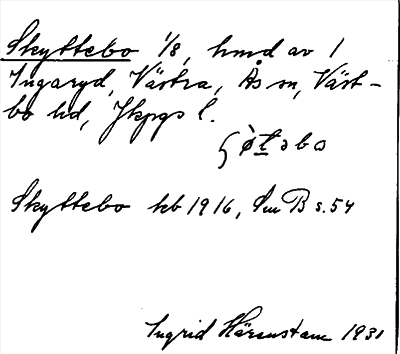 Skyttebo 1/8, hmd av 1
Ingaryd, Västra, Ås sn, Väst-
bo hd, Jkpgs l.
Skyttebo kb 1916, Sm B s. 54
Ingrid Härenstam 1931